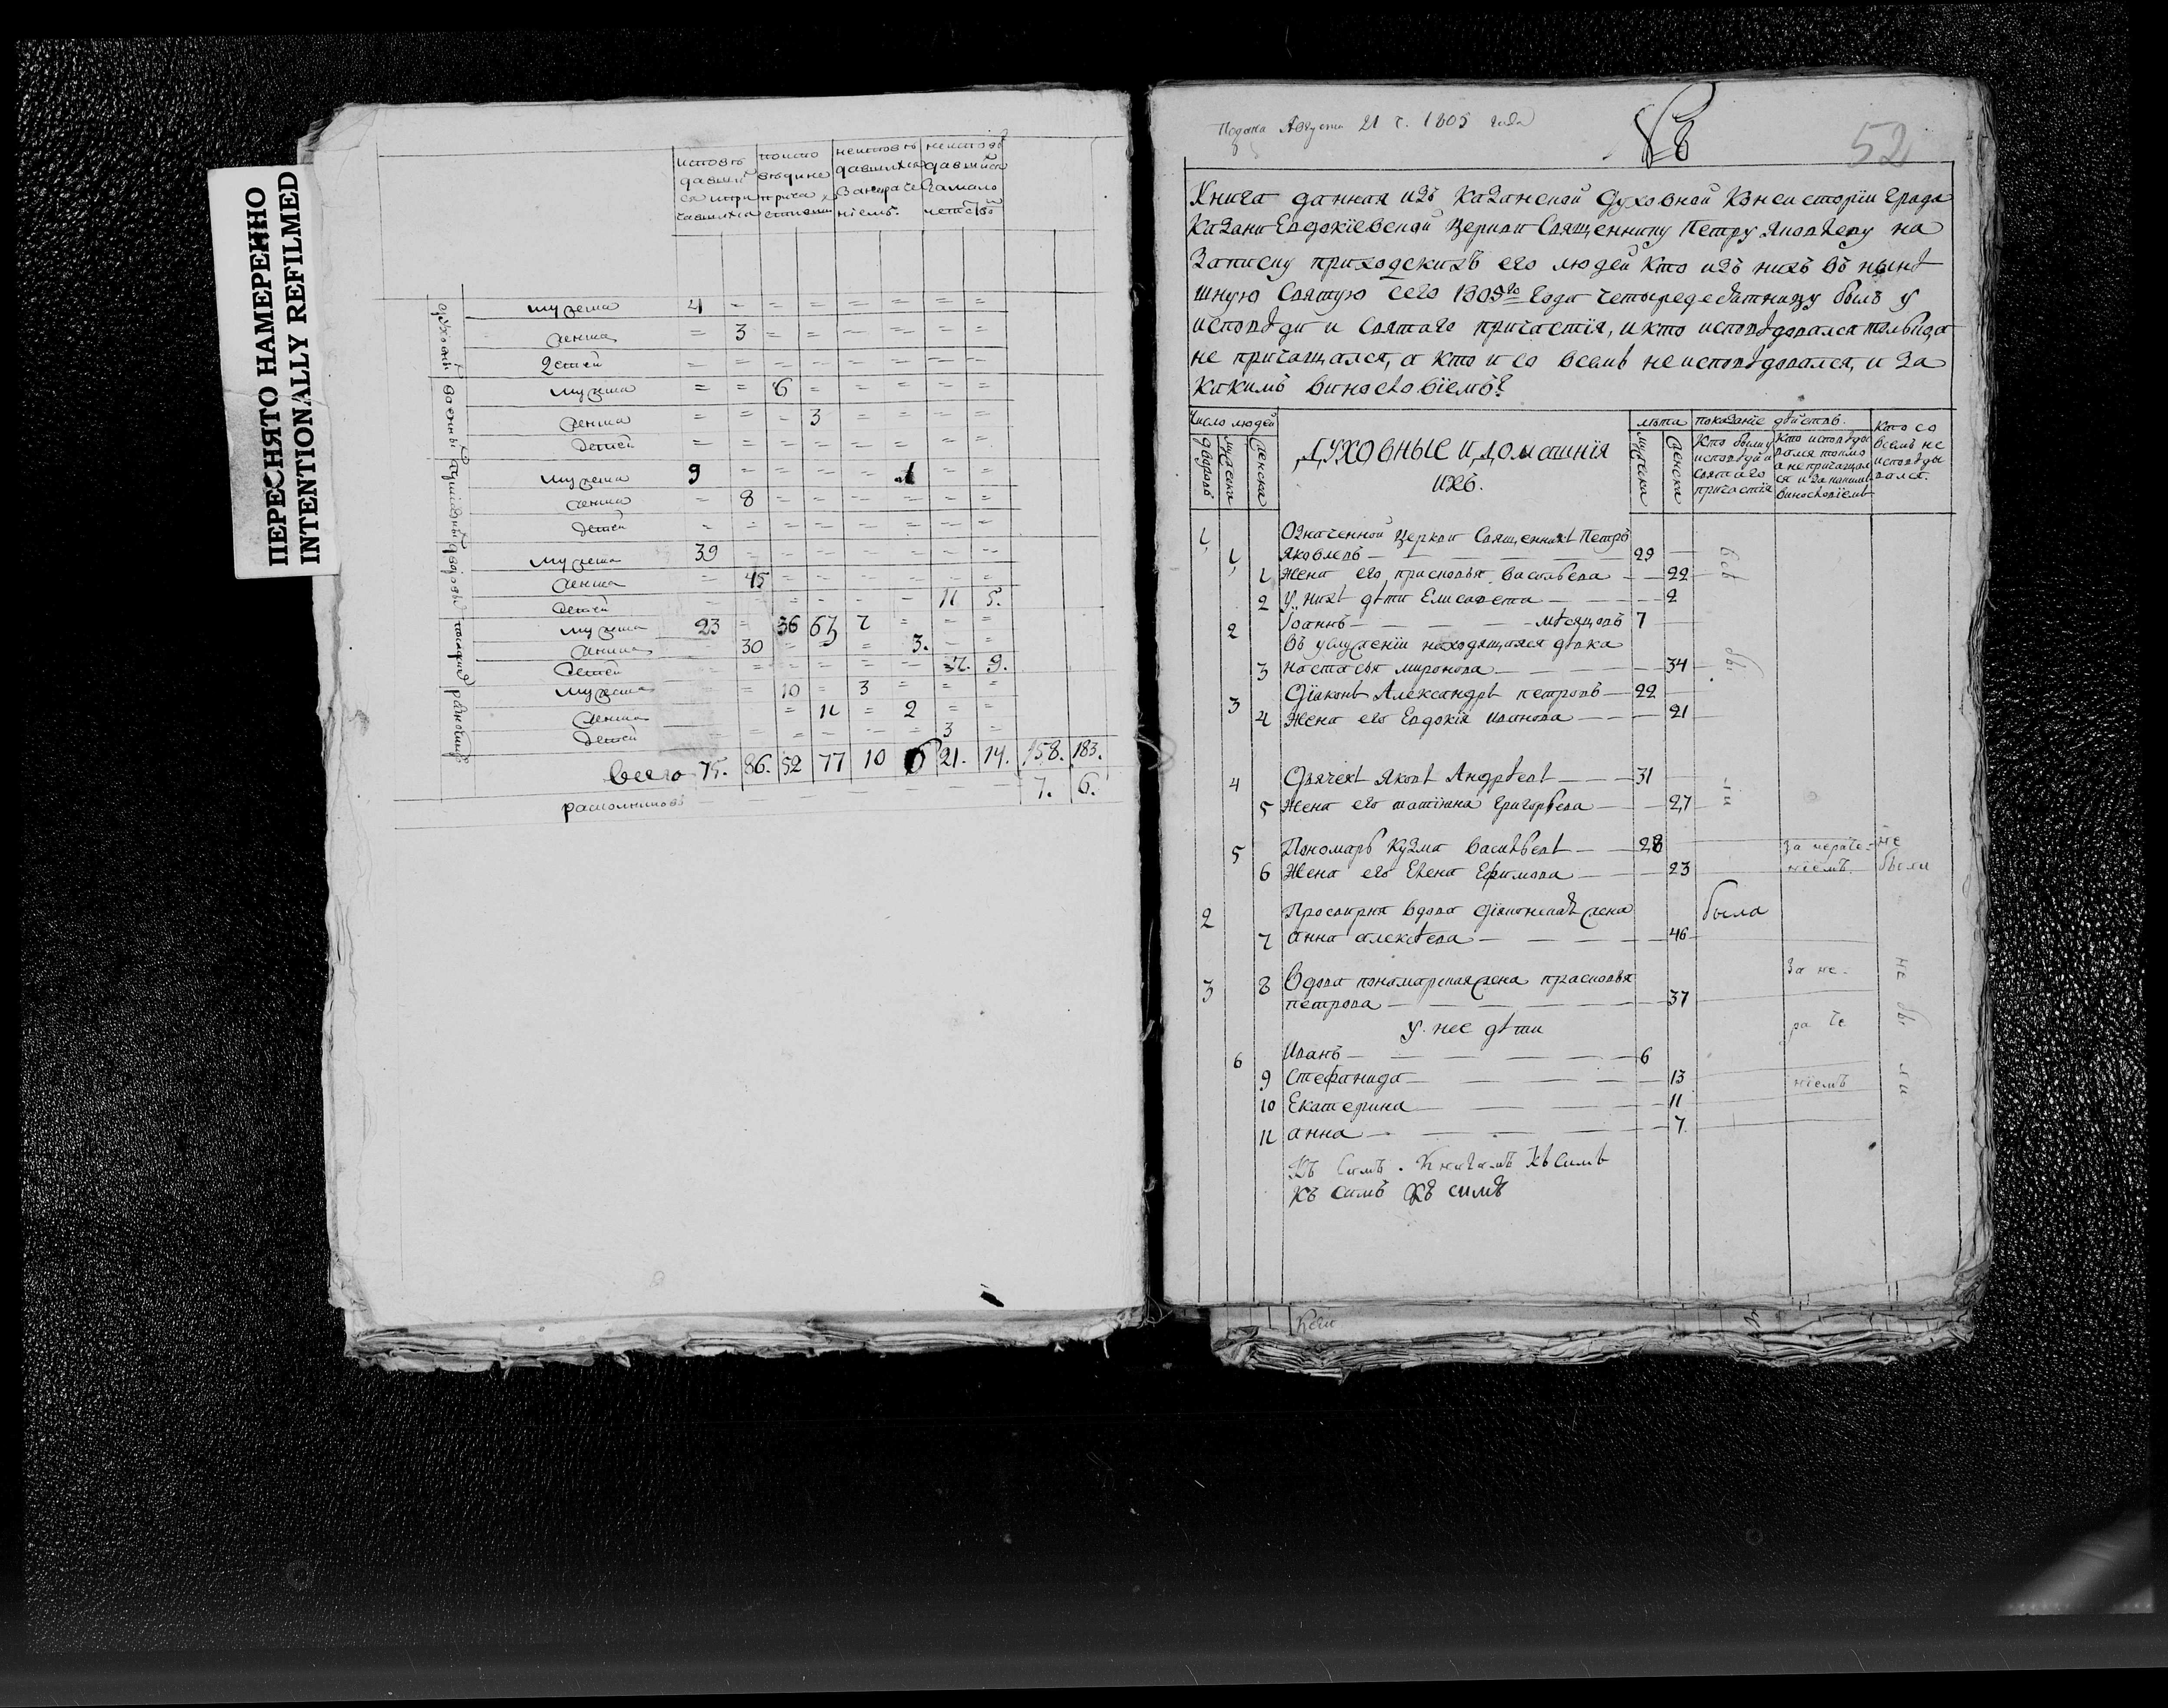 ПЕРЕСНЯТО НАМЕРЕННО
INTENTIONALLY REFILMED
мужеска 4 = = = = = = =
женска = 3 = = = = = =
детей = = = = = = = =
мужеска = = 6 = = = = =
женска = = - 3 = = = =
детей = = = = = = = =
мужеска 9 = = = = 1 = =
женска = 8 = = = = = =
детей = = = = = = = =
мужеска 39 = = = = = = =
женска = 45 = = = = = =
детей = = = = = = 11 5.
мужеска 23 = 36 63 2 = = =
женска = 30 = = = 3. = =
детей
мужеска = = 10 = 3 = = =
женска = 11 = 2 = =
детей = = = = = = 3 =
всего 75. 86. 52 77 10 6 21. 14. 158. 183.
раскольниковъ 7. 6.
Подана Августа 21 ч. 1805 года
52
Книга данная изъ Казанской Духовной Консисторіи града
Казани Евдокіевской Церкви Священнику Петру Яковлеву на
Записку приходскихъ его людей кто изъ нихъ въ нынѣ
шную Святую сего 1805го года четыредесятницу былъ у
исповѣди и Святаго причастія, и кто исповѣдовался только да
не причащался, а кто и со всемъ не исповѣдовался, и за
какимъ винословіемъ?
Число людей
дворовъ
мужеска
женска
ДУХОВНЫЕ И ДОМАШНІЯ
ИХЪ.
лѣта
мужеска
женска
показаніе дѣйствъ
Кто были у исповѣди и святаго причастія
Кто исповѣдывался токмо а не причащался и за какимъ винословіемъ
Кто со всемъ не исповѣдывался.
1 Означенной Церкви Священникъ Петръ
1 Яковлевъ 29
1 Жена его прасковья Васильева 22
2 У нихъ дѣти Елисавета 2
2 Іоаннъ мѣсяцовъ 7
Въ услуженіи находящаяся дѣвка
3 Настасья миронова 34
3 Діаконъ Александръ петровъ 22
4 Жена его Евдокія иванова 21
всѣ бы ли
4 Дьячекъ Яковъ Андрѣевъ 31
5 Жена его татіянна григорьева 27
5 Пономарь Кузма Васильевъ 28 за нераче- не
6 Жена его Елена Ефимова 23 ніемъ. были
2 Просвирня вдова діаконская жена была
7 анна алексѣева 46
3 8 Вдова пономарская жена прасковья
петрова 37
У нее дѣти
6 Иванъ 6
9 Стефанида 13
10 Екатерина 11
11 анна 7
за не-
ра че
ніемъ
не бы ли
Къ Симъ. Книгамъ Къ Симъ
Къ симъ Къ симъ